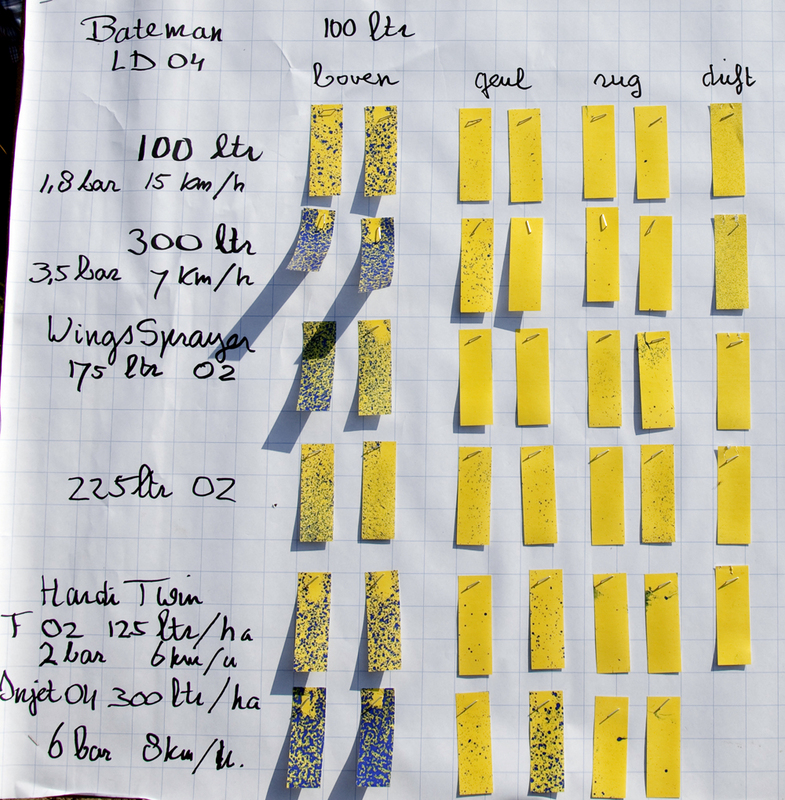 Bateman 100 ltr
LD 04
boven geul rug drift
100 ltr
1,8 bar 15 km/h
300 ltr
3,5 bar 7 Km/h
WingsSprayer
175 ltr 02
225 ltr 02
Hardi Twin
T 02 125 ltr/ha
2 bar 6 km/u
Injet 04 300 ltr/ha
6 bar 8km/u.